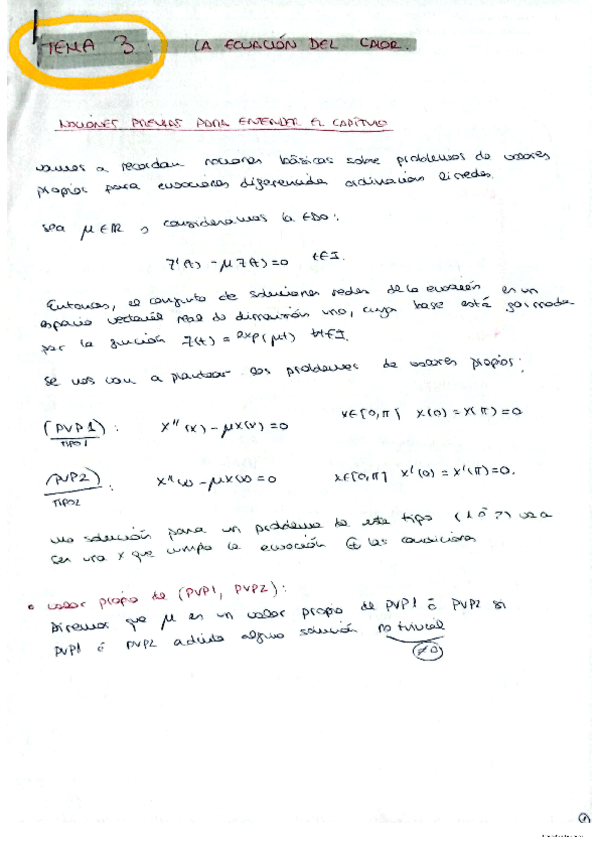 TEMA 3: LA ECUACIÓN DEL CALOR.
NOCIONES PREVIAS PARA ENTENDER EL CAPÍTULO
vamos a recordar nociones básicas sobre problemas de valores
propios para ecuaciones diferenciales ordinarias lineales.
Sea μ ∈ ℝ y consideramos la EDO:
T'(t) - μT(t) = 0 t∈I.
Entonces, el conjunto de soluciones reales de la ecuación es un
espacio vectorial real de dimensión uno, cuya base está formada
por la función T(t) = exp(μt) ∀t∈I.
Se nos van a plantear los problemas de valores propios:
(PVP1): X''(x) - μX(x) = 0 x∈[0,π] X(0) = X(π) = 0
TIPO 1
(PVP2): X''(x) - μX(x) = 0 x∈[0,π] X'(0) = X'(π) = 0.
TIPO 2
una solución para un problema de este tipo (1 ó 2) va a
ser una X que cumpla la ecuación ⊕ las condiciones
• valor propio de (PVP1, PVP2):
Diremos que μ es un valor propio de PVP1 ó PVP2 si
PVP1 ó PVP2 admite alguna solución no trivial
(≠0)